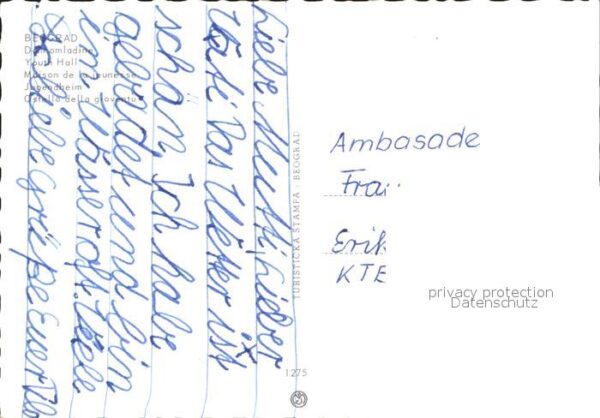 BEOGRAD
Dom omladine
Youth Hall
Maison de la jeunesse
Jugendheim
Ostello della gioventu
Liebe Mutti, Lieber
Vati! Das Wetter ist
schön, Ich habe
gebadet und bin
im Wasser oft. Viele
liebe Grüße Euer
TURISTIČKA ŠTAMPA - BEOGRAD
Ambasade
Frau
Erik
KTE
privacy protection
Datenschutz
1275